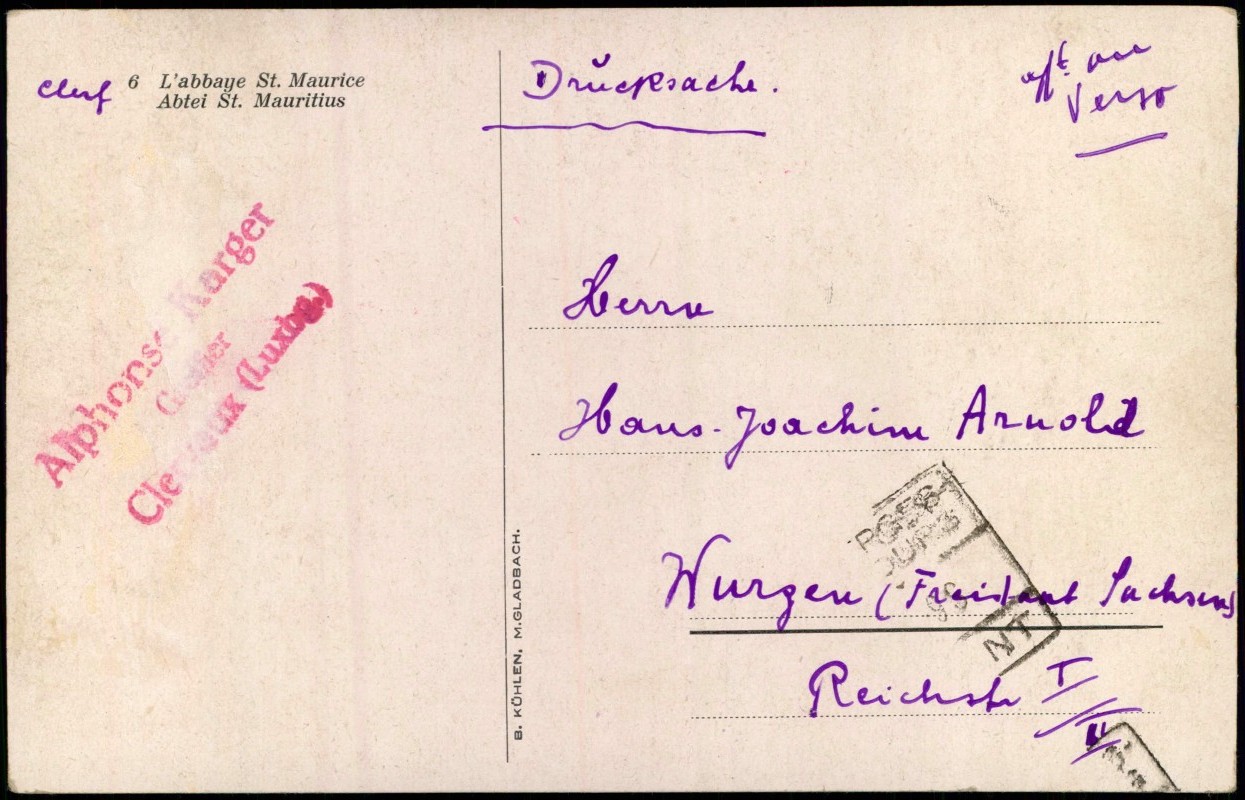 Clerf 6 L'abbaye St. Maurice
Abtei St. Mauritius
Drucksache.
verso
Alphonse Karger
Greffier
Clervaux (Luxbg.)
Herrn
Hans-Joachim Arnold
Wurzen (Freistaat Sachsen)
Reichstr I/II
B. KÜHLEN, M.GLADBACH.
NT